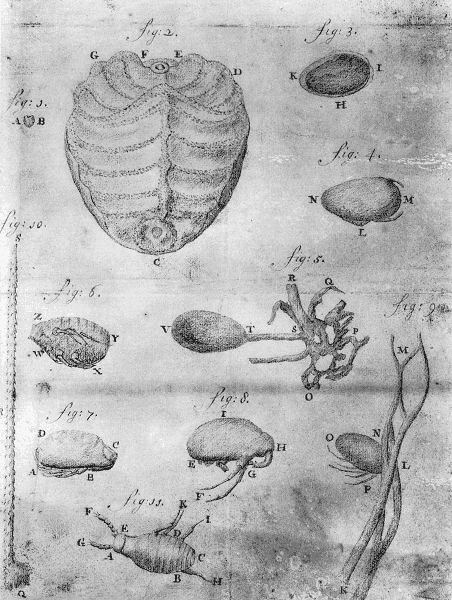 fig: 1.
A B
fig: 2.
G F E
D
C
fig: 3.
K I
H
fig: 4.
N M
L
fig: 5.
R Q
V T S P
O
fig: 6.
Z
Y
W
X
fig: 7.
D
C
A B
fig: 8.
I
H
E G
F
fig: 9.
M
O N
L
P
K
fig: 10.
S
Q
fig: 11.
K
F I
E D
G
A C
B H